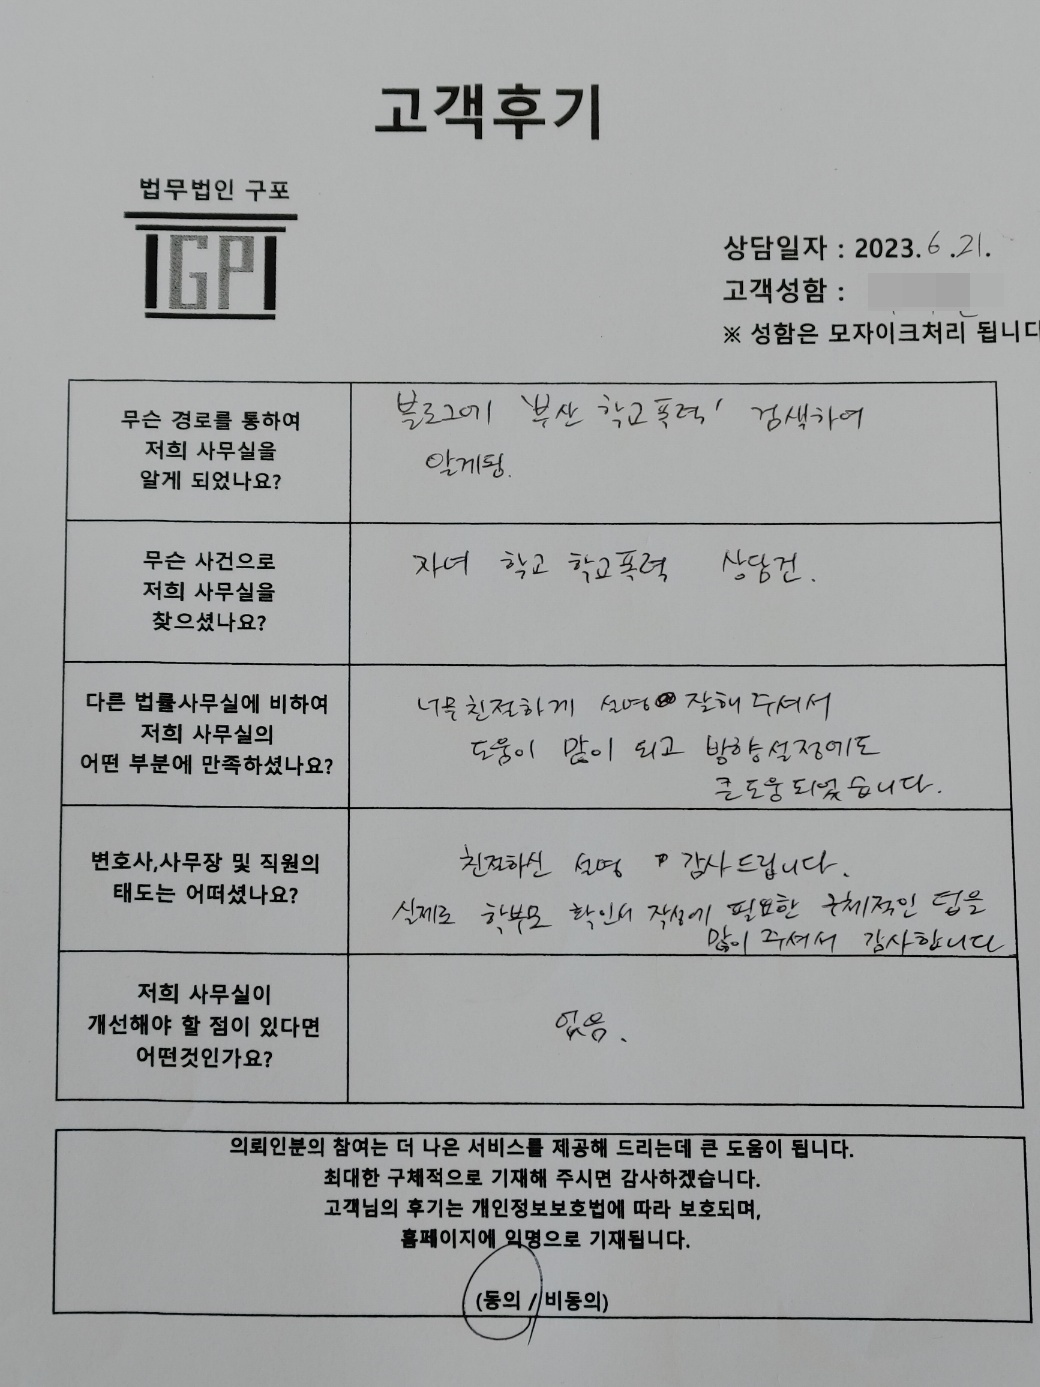 고객후기
법무법인 구포
GP
상담일자 : 2023. 6 .21.
고객성함 :
※ 성함은 모자이크처리 됩니다
무슨 경로를 통하여
저희 사무실을
알게 되었나요?
블로그에 '부산 학교폭력' 검색하여
알게됨.
무슨 사건으로
저희 사무실을
찾으셨나요?
자녀 학교 학교폭력 상담건.
다른 법률사무실에 비하여
저희 사무실의
어떤 부분에 만족하셨나요?
너무 친절하게 설명 잘해 주셔서
도움이 많이 되고 방향설정에도
큰도움 되었습니다.
변호사,사무장 및 직원의
태도는 어떠셨나요?
친절하신 설명 감사드립니다.
실제로 학부모 확인서 작성에 필요한 구체적인 팁을
많이 주셔서 감사합니다
저희 사무실이
개선해야 할 점이 있다면
어떤것인가요?
없음.
의뢰인분의 참여는 더 나은 서비스를 제공해 드리는데 큰 도움이 됩니다.
최대한 구체적으로 기재해 주시면 감사하겠습니다.
고객님의 후기는 개인정보보호법에 따라 보호되며,
홈페이지에 익명으로 기재됩니다.
(동의 / 비동의)